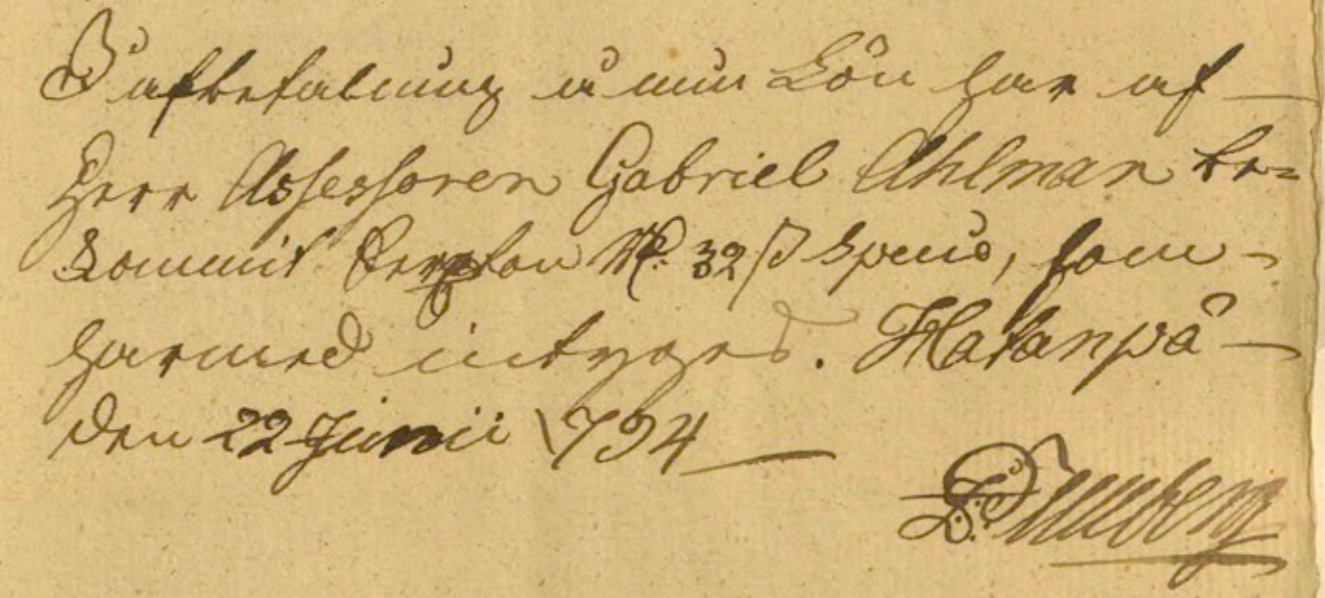 I afbetalning å min Lön har af
Herr Assessoren Gabriel Ahlman be=
kommit Rd. 32 ß Specie, som
härmed intygas. Hatanpä
den 22 Junii 1794